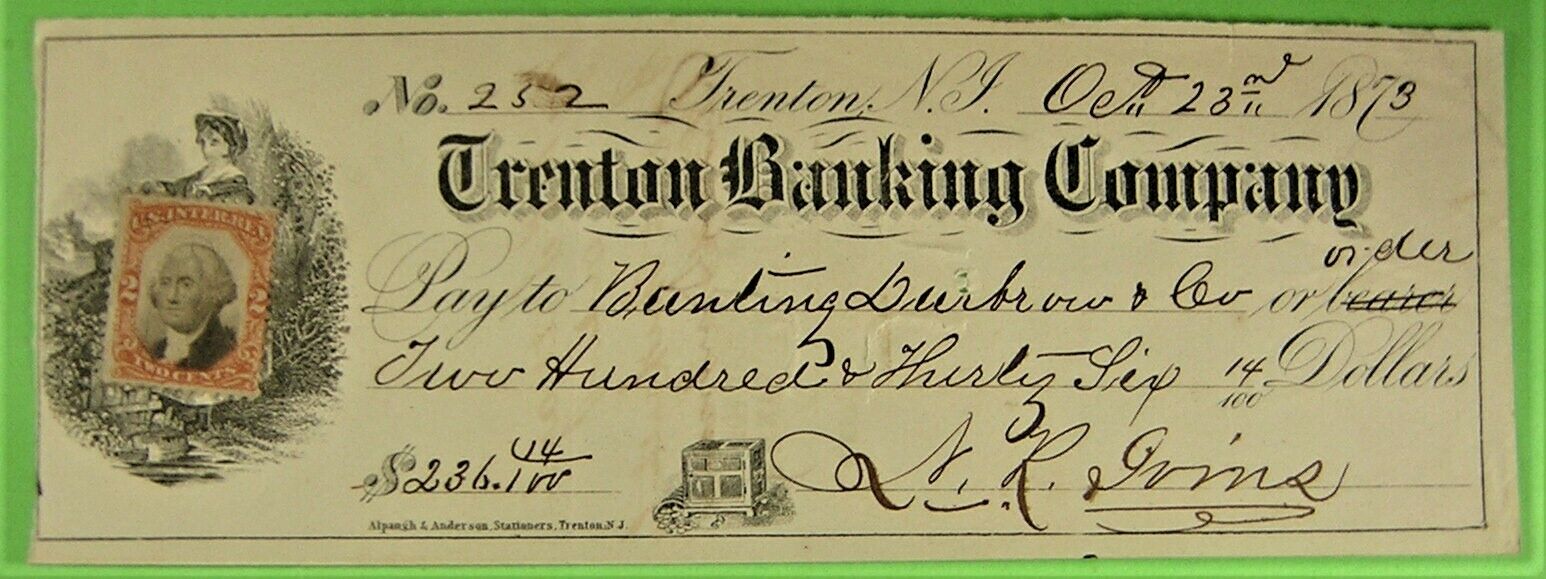 No. 252 Trenton, N.J. Oct 23rd 1873
Trenton Banking Company
order
Pay to Bunting Durbrow & Co or bearer
Two Hundred & Thirty Six 14/100 Dollars
$236.14/100 N. R. Ivins
Alpaugh & Anderson, Stationers, Trenton, N.J.
U.S. INTER. REV.
2 2
TWO CENTS